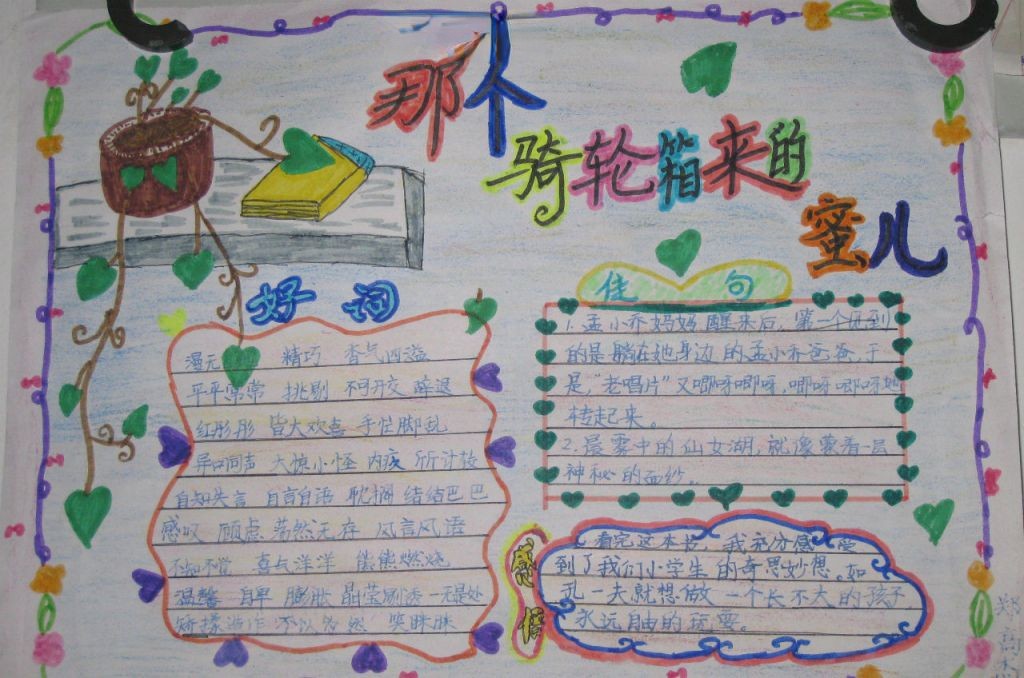 那个
骑轮箱来的
蜜儿
好词
精巧 香气四溢
平平常常 挑剔 不可开交 辞退
红彤彤 皆大欢喜 手忙脚乱
异口同声 大惊小怪 内疚 斤斤计较
自知失言 自言自语 耽搁 结结巴巴
感叹 顾虑 荡然无存 风言风语
不知不觉 喜气洋洋 熊熊燃烧
温馨 自卑 膨胀 晶莹剔透 一无是处
矫揉造作 不以为然 笑眯眯
佳句
1.孟小乔妈妈醒来后,第一个见到
的是躺在她身边的孟小乔爸爸,于
是,"老唱片"又唧呀唧呀,唧呀唧呀地
转起来。
2.晨雾中的仙女湖,就像蒙着一层
神秘的面纱。
感悟
看完这本书,我充分感受
到了我们小学生的奇思妙想。如
一夫就想做一个长不大的孩子
永远自由的